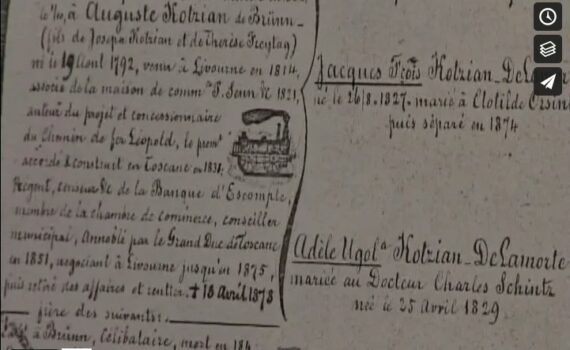 à Auguste Kotzian de Brünn
(fils de Joseph Kotzian et de Thérèse Freytag)
né le 19 Août 1792, venu à Livourne en 1814,
associé de la maison de comm.ce en 1821,
auteur du projet et concessionnaire
du Chemin de fer Léopold, le prem.r
accordé & construit en Toscane en
Régent, censeur &c de la Banque d'Escompte,
membre de la chambre de commerce, conseiller
municipal, Annobli par le Grand Duc de Toscane
en 1851, négociant à Livourne jusqu'en 1875,
puis retiré des affaires et rentier. † 18 Avril 1878
frère des suivants.
à Brünn, Célibataire, mort en 184
Jacques Fçois Kotzian-DeLa
né le 26/8.1827. marié à Clotilde Orsin
puis séparé en 1874
Adèle Ugol.a Kotzian-DeLamorte
mariée au Docteur Charles Schintz
née le 25 Avril 1829